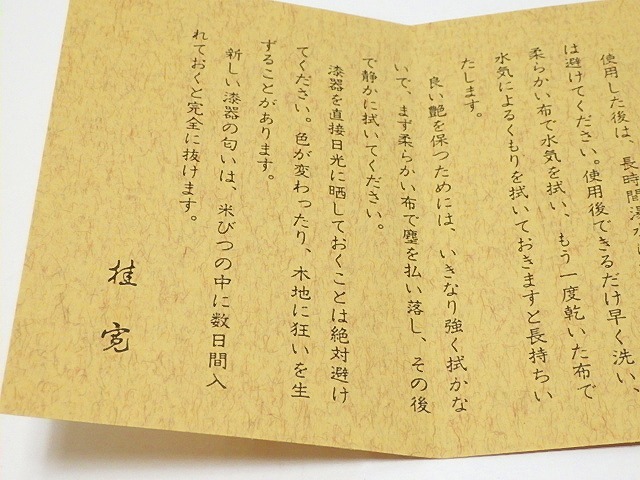 使用した後は、長時間湯水に
は避けてください。使用後できるだけ早く洗い、
柔らかい布で水気を拭い、もう一度乾いた布で
水気によるくもりを拭いておきますと長持ちい
たします。
良い艶を保つためには、いきなり強く拭かな
いで、まず柔らかい布で塵を払い落し、その後
で静かに拭いてください。
漆器を直接日光に晒しておくことは絶対避け
てください。色が変わったり、木地に狂いを生
ずることがあります。
新しい漆器の匂いは、米びつの中に数日間入
れておくと完全に抜けます。
桂寛